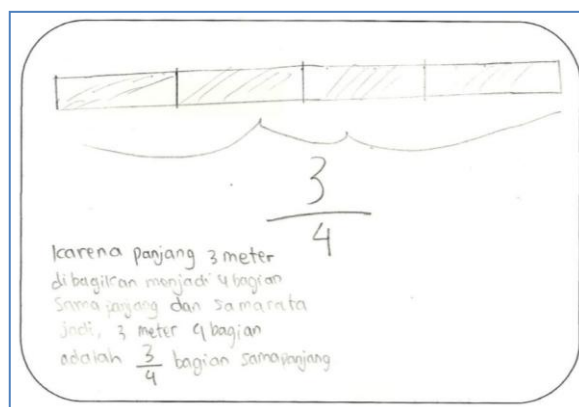 3
4
karena panjang 3 meter
dibagikan menjadi 4 bagian
sama panjang dan samarata
jadi, 3 meter 4 bagian
adalah 3/4 bagian samapanjang